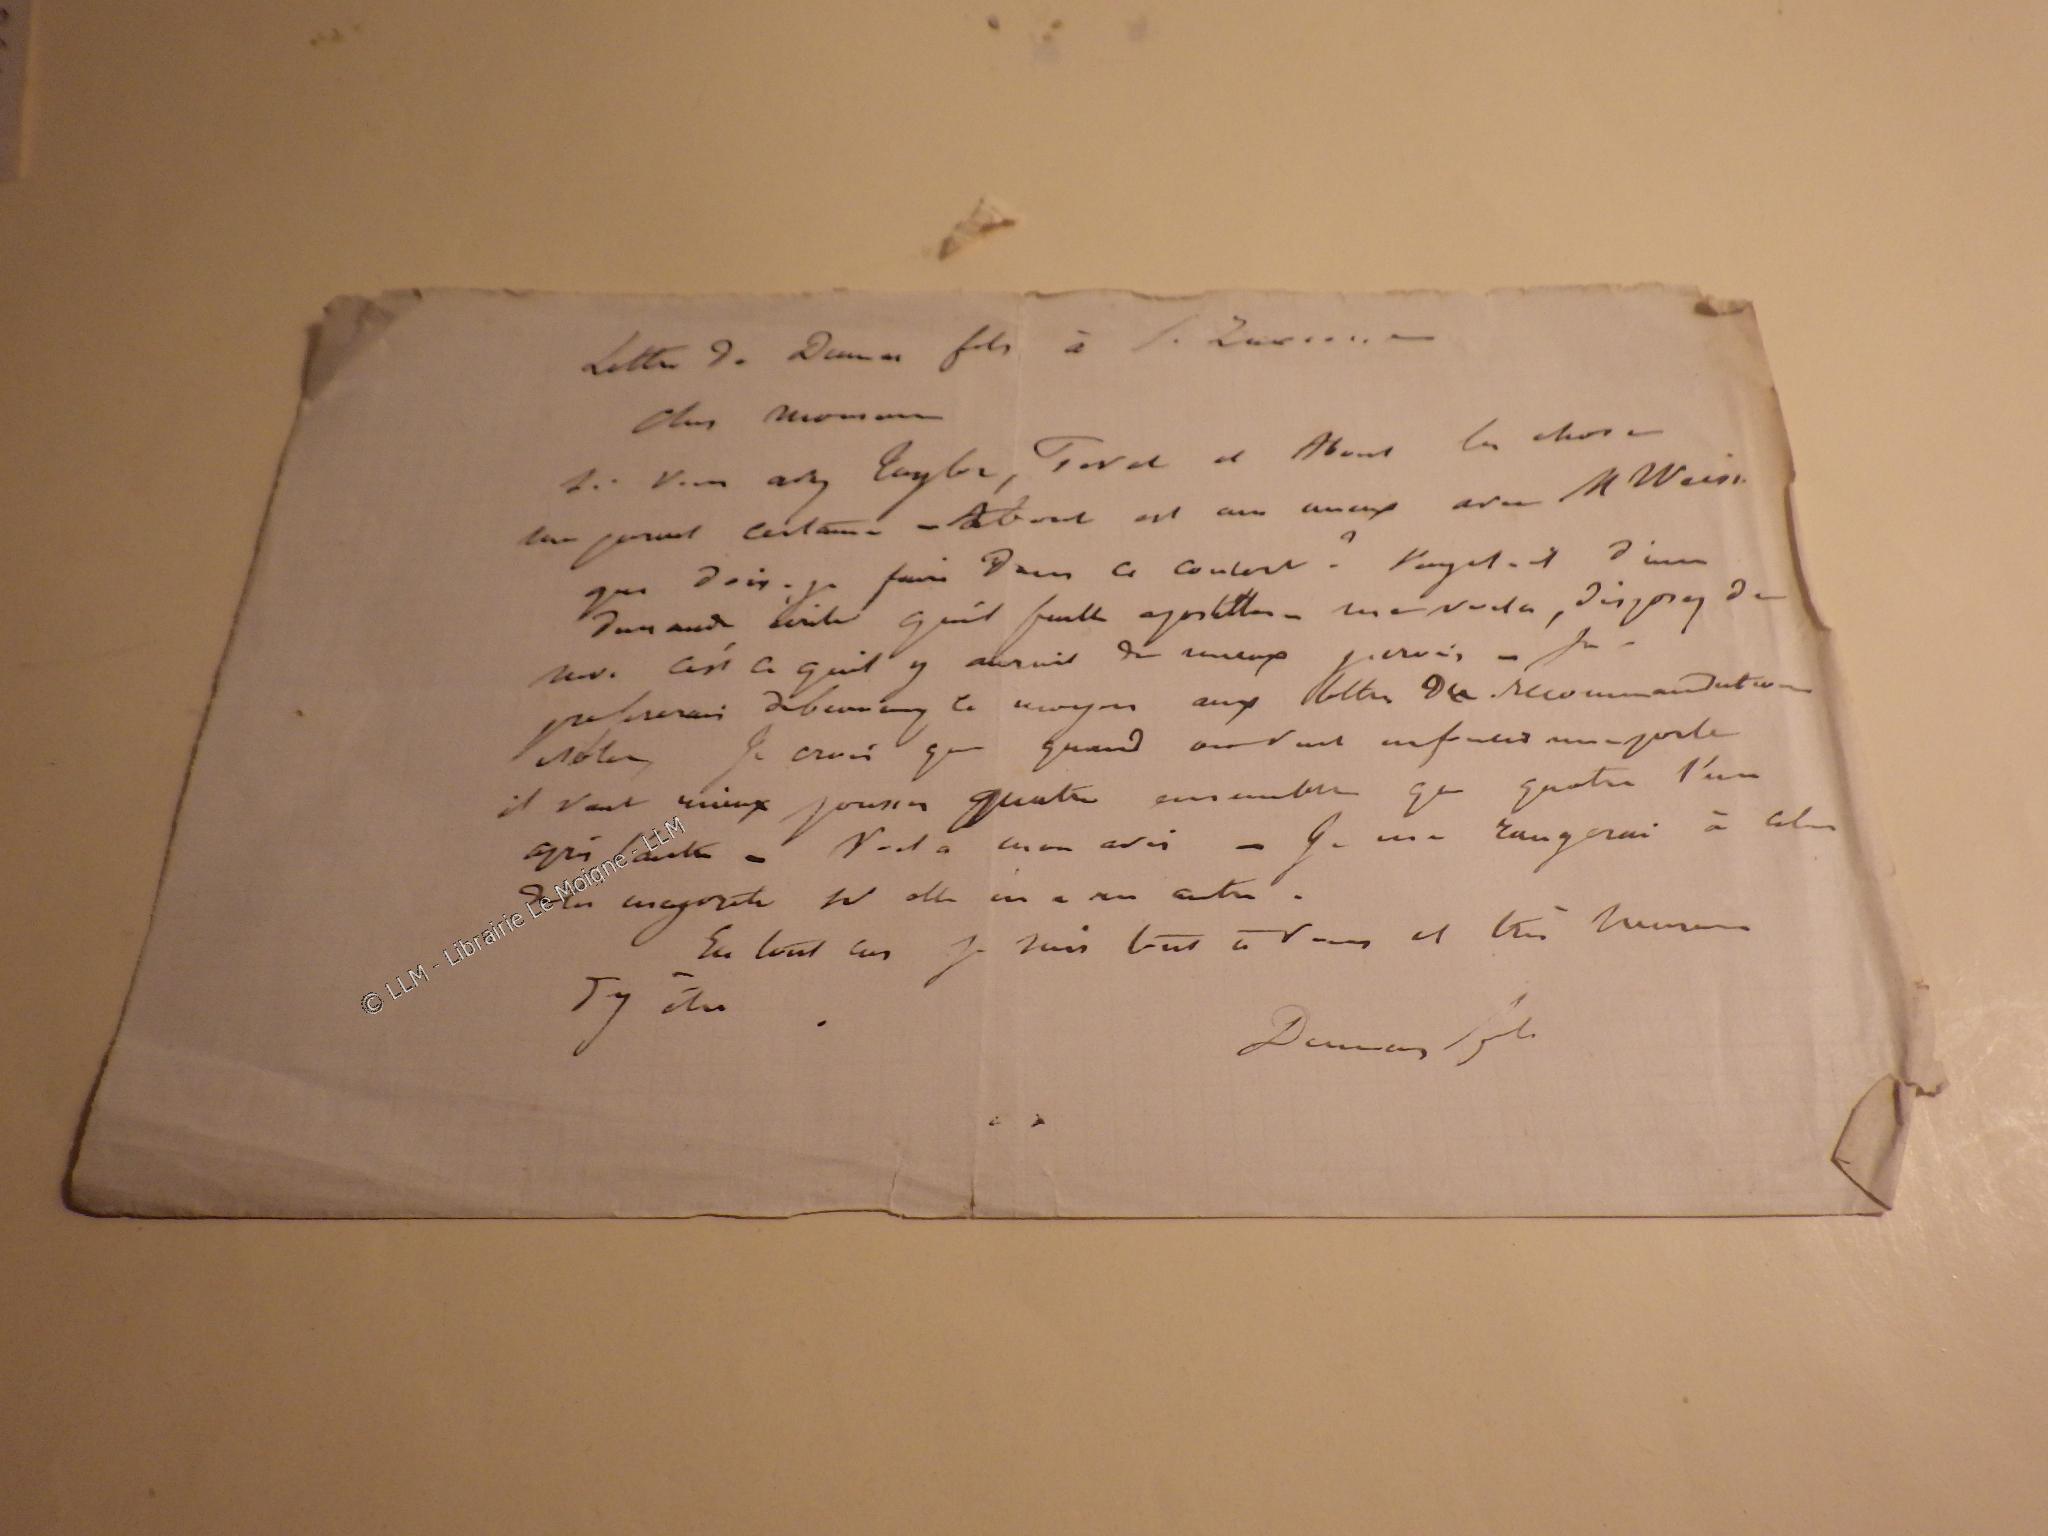 Lettre de Dumas fils à
Cher Monsieur
Si vous avez Taylor, et About la chose
me parait certaine - About est au mieux avec M Weiss.
que dois-je faire dans ce concert ? S'agit-il d'une
demande écrite qu'il faille apostiller - me voila, disposez de
moi c'est ce qu'il y aurait de mieux je crois - Je
préférerais de beaucoup ce moyen aux lettres de recommandation
isolées, Je crois que quand on veut enfoncer une porte
il vaut mieux pousser quatre ensemble que quatre l'un
après l'autre - Voila mon avis - Je me rangerai à celui
de la majorité si elle en a un autre.
En tout cas je suis tout à vous et très heureux
d'y être.
Dumas fils
© LLM - Librairie Le Moigne - LLM